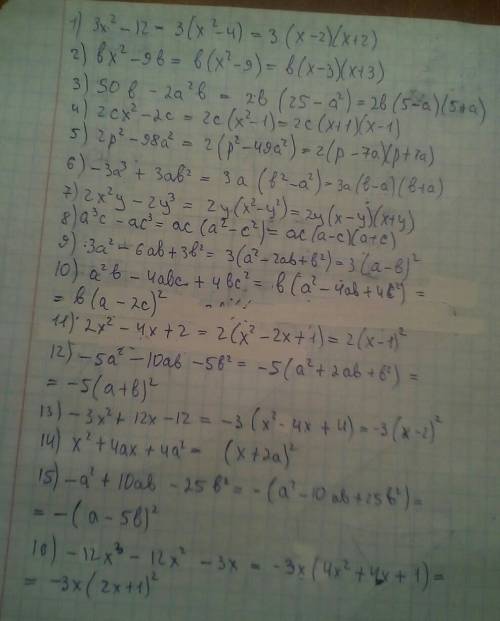 1) 3x² - 12 = 3(x² - 4) = 3 (x-2)(x+2)
2) вx² - 9в = в(x² - 9) = в(x-3)(x+3)
3) 50в - 2a²в = 2в (25 - a²) = 2в (5-a)(5+a)
4) 2cx² - 2c = 2c (x² - 1) = 2c (x+1)(x-1)
5) 2p² - 98a² = 2(p² - 49a²) = 2(p - 7a)(p+7a)
6) -3a³ + 3aв² = 3a (в² - a²) = 3a(в-a)(в+a)
7) 2x²y - 2y³ = 2y(x² - y²) = 2y(x-y)(x+y)
8) a³c - ac³ = ac (a² - c²) = ac(a-c)(a+c)
9) 3a² - 6aв + 3в² = 3(a² - 2aв + в²) = 3(a-в)²
10) a²в - 4aвc + 4вc² = в(a² - 4aв + 4в²) =
= в(a - 2c)²
11) 2x² - 4x + 2 = 2(x² - 2x + 1) = 2(x-1)²
12) -5a² - 10aв - 5в² = -5(a² + 2aв + в²) =
= -5(a+в)²
13) -3x² + 12x - 12 = -3(x² - 4x + 4) = -3(x-2)²
14) x² + 4ax + 4a² = (x+2a)²
15) -a² + 10aв - 25в² = -(a² - 10aв + 25в²) =
= -(a - 5в)²
16) -12x³ - 12x² - 3x = -3x(4x² + 4x + 1) =
= -3x(2x+1)²